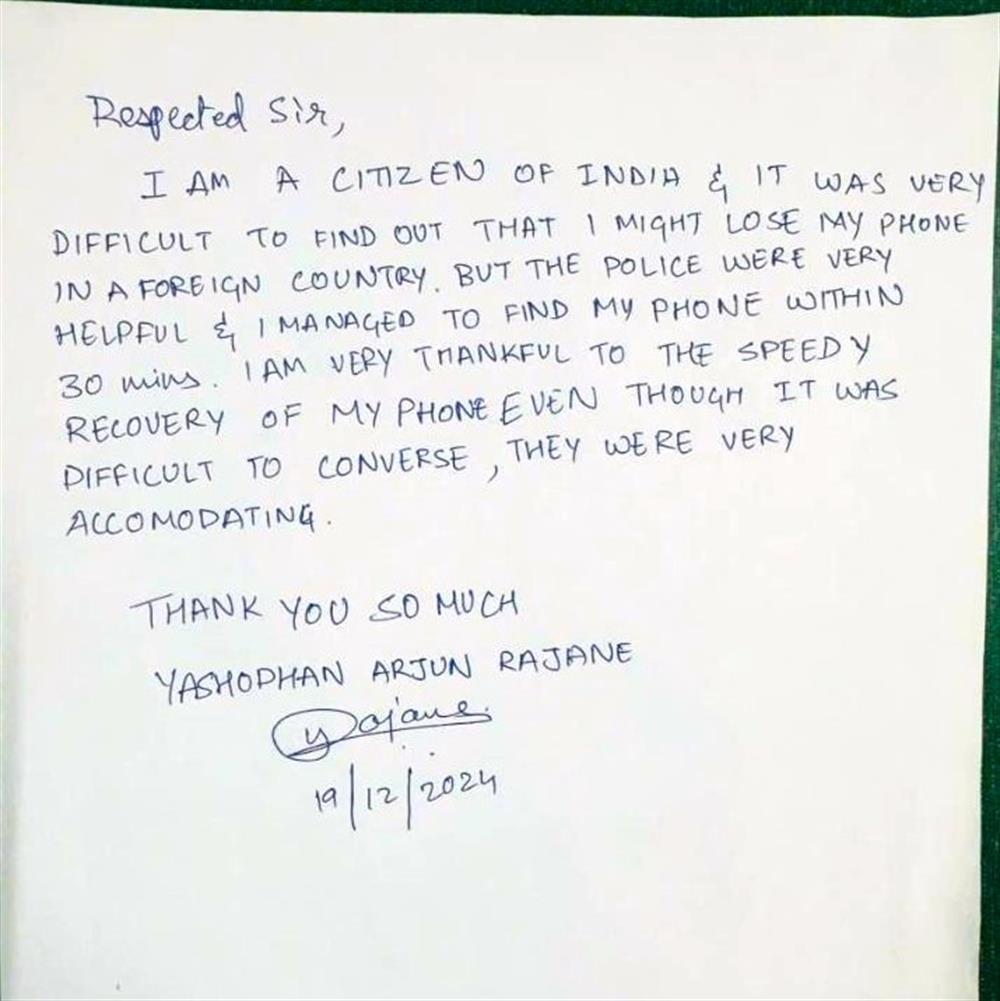 Respected Sir,
I AM A CITIZEN OF INDIA & IT WAS VERY
DIFFICULT TO FIND OUT THAT I MIGHT LOSE MY PHONE
IN A FOREIGN COUNTRY. BUT THE POLICE WERE VERY
HELPFUL & I MANAGED TO FIND MY PHONE WITHIN
30 mins. I AM VERY THANKFUL TO THE SPEEDY
RECOVERY OF MY PHONE EVEN THOUGH IT WAS
DIFFICULT TO CONVERSE, THEY WERE VERY
ACCOMODATING.
THANK YOU SO MUCH
YASHODHAN ARJUN RAJANE
YRajane.
19/12/2024